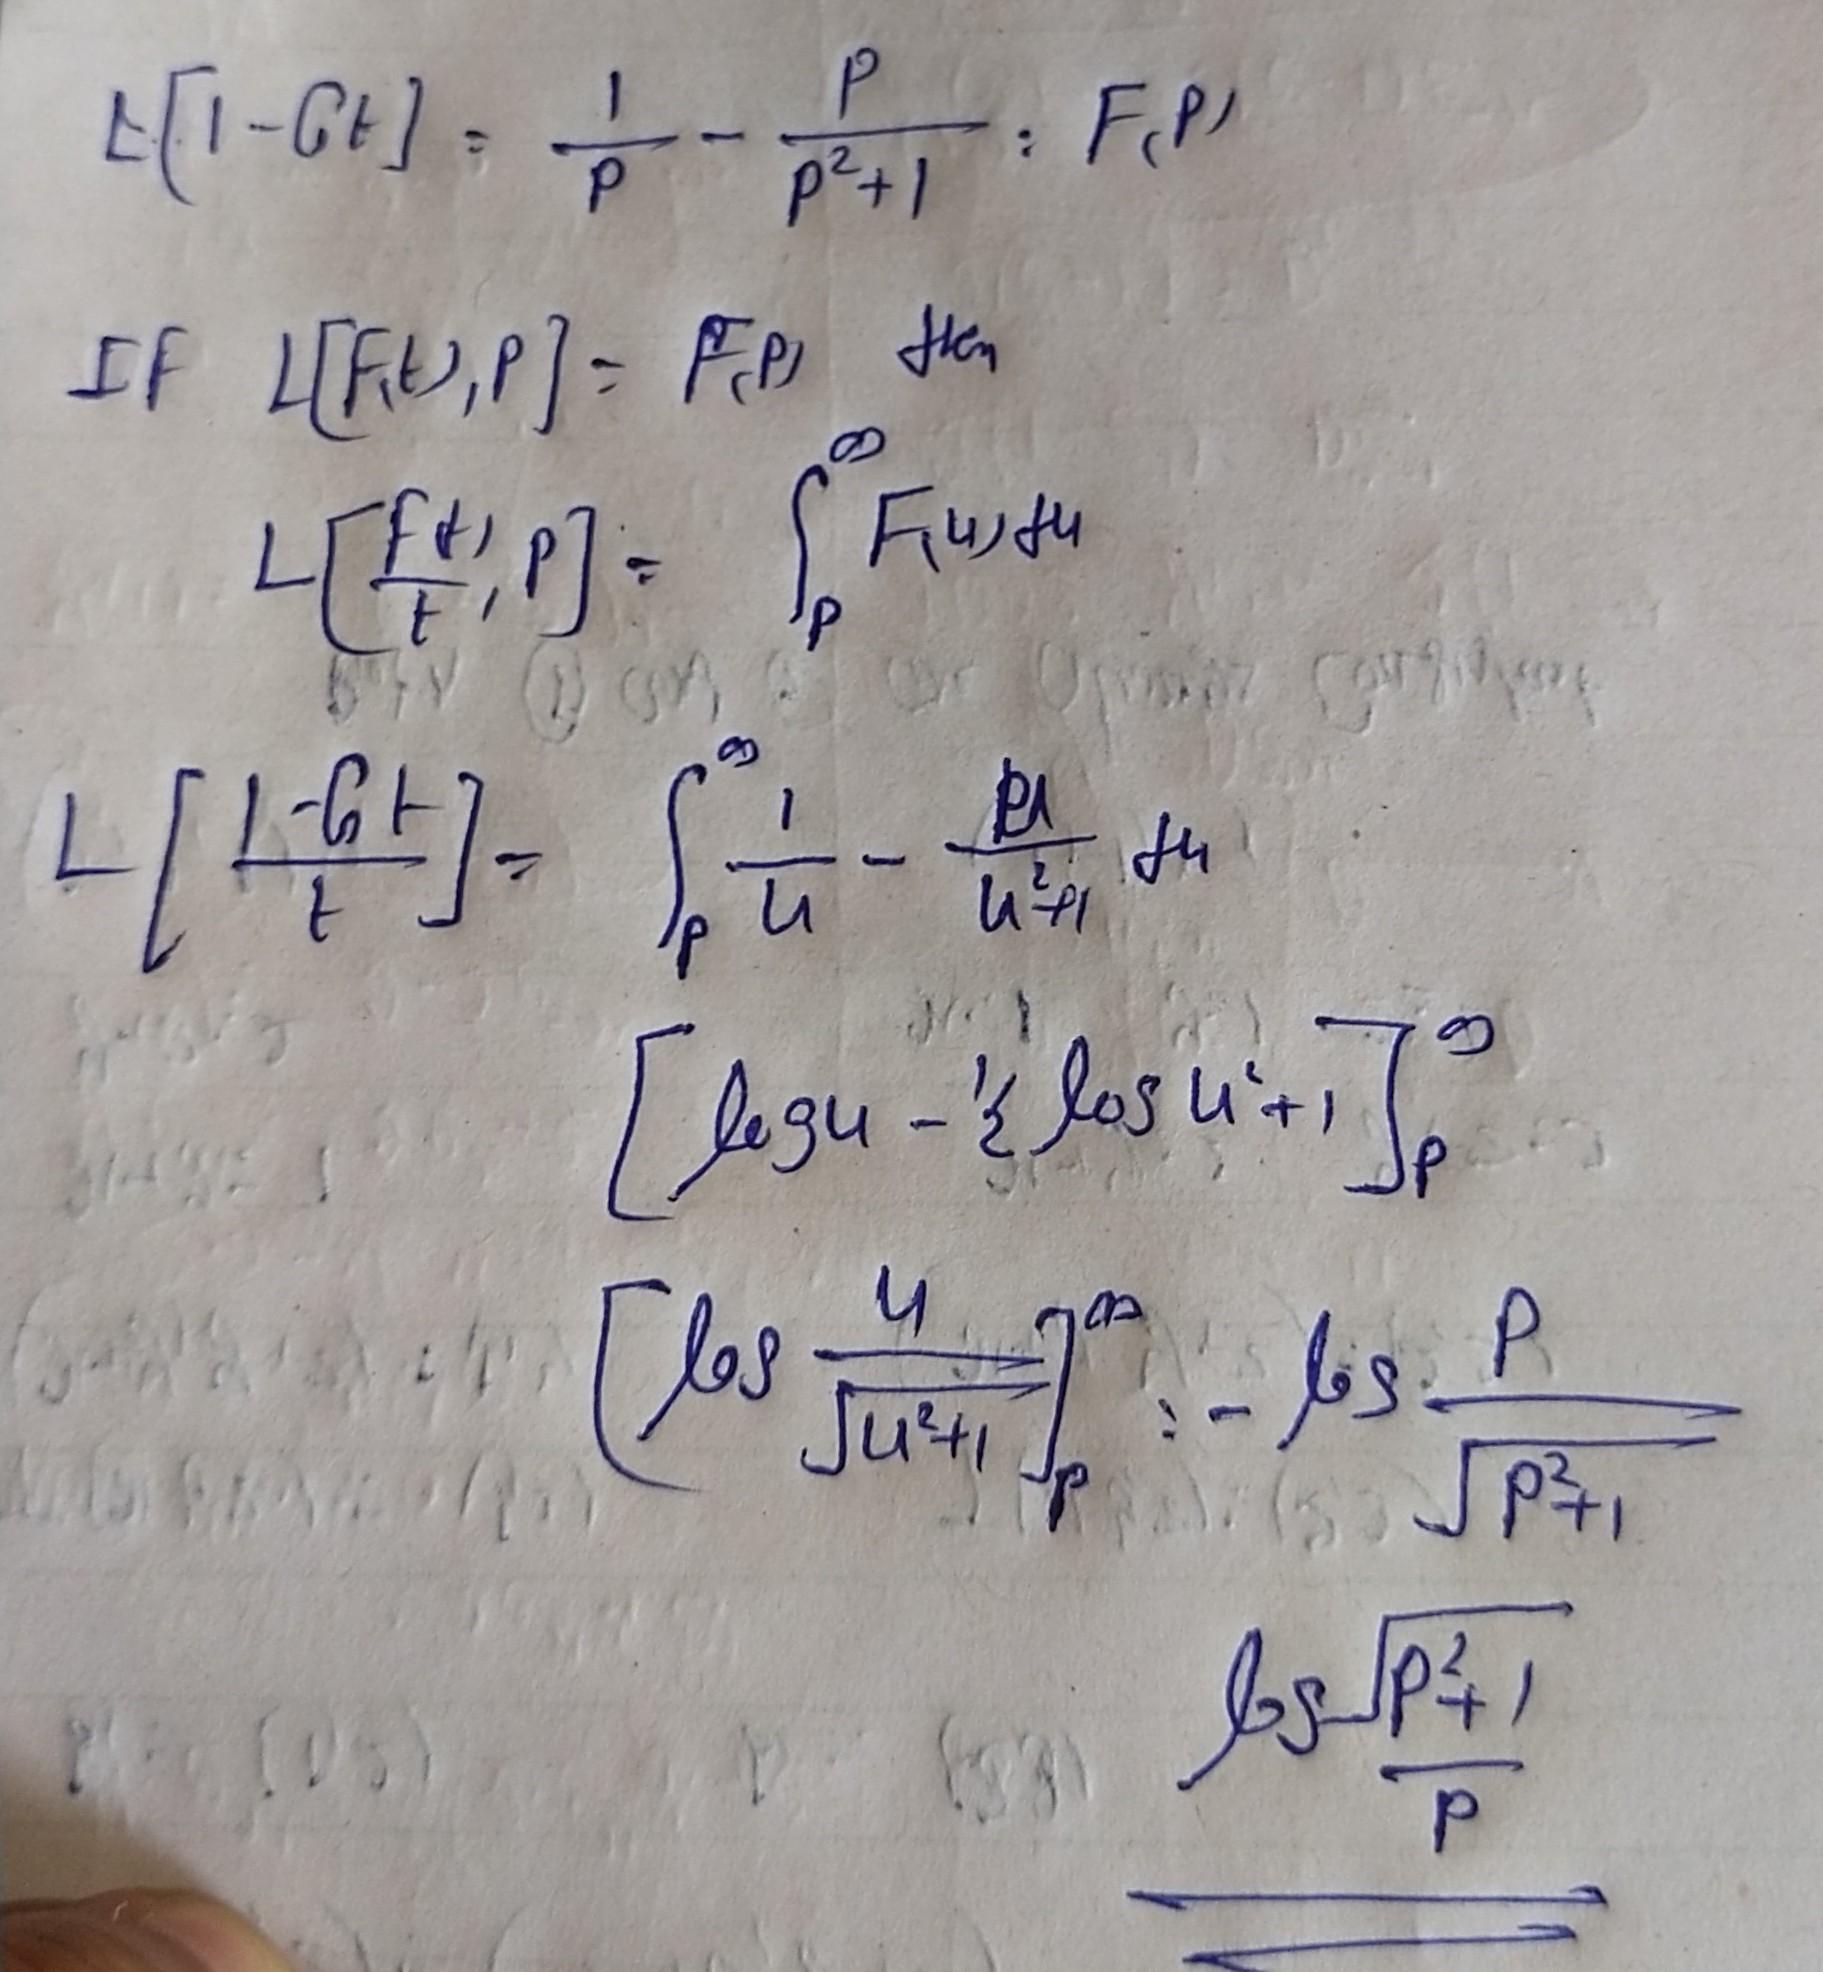 L[1-Cost] = 1/P - P/(P²+1) = F(P)
If L[F(t), P] = F(P) then
L[F(t)/t, P] = ∫_P^∞ F(u) du
L[(1-Cost)/t] = ∫_P^∞ 1/u - u/(u²+1) du
[log u - ½ log u²+1]_P^∞
[log u/√(u²+1)]_P^∞ = - log P/√(P²+1)
log √(P²+1)/P